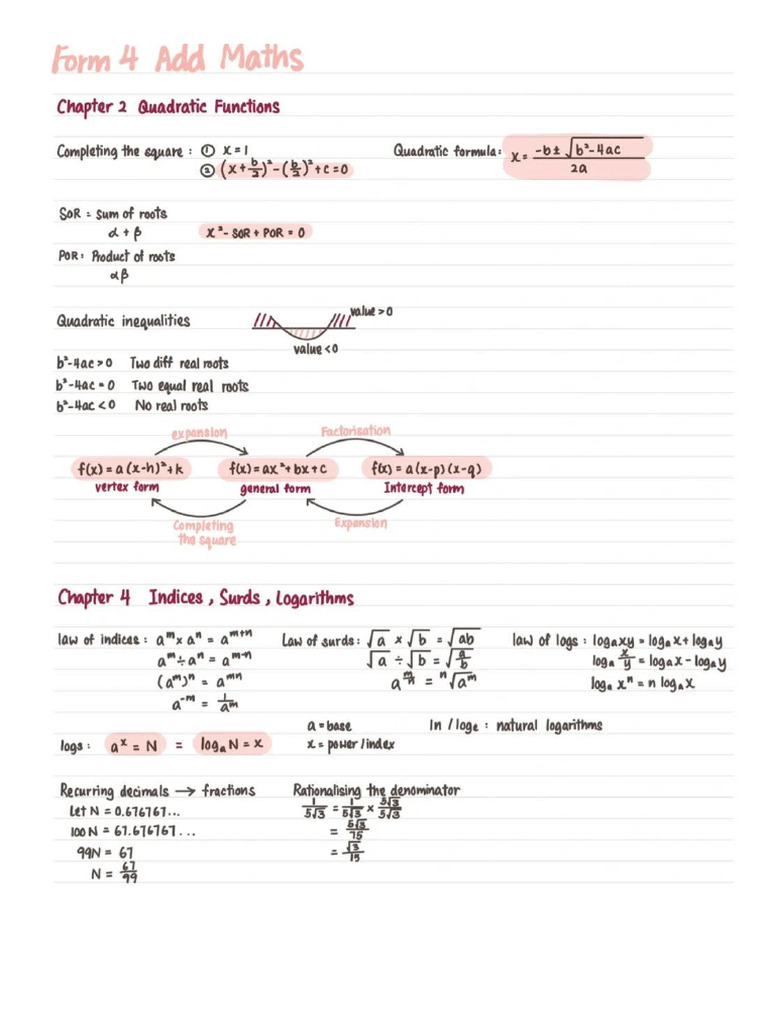 Form 4 Add Maths
Chapter 2 Quadratic Functions
Completing the square : ① x = 1
② (x + b/2)² - (b/2)² + c = 0
Quadratic formula: x = -b ± √b² - 4ac / 2a
SOR = Sum of roots
α + β
x² - SOR + POR = 0
POR: Product of roots
αβ
Quadratic inequalities
value > 0
value < 0
b² - 4ac > 0 Two diff real roots
b² - 4ac = 0 Two equal real roots
b² - 4ac < 0 No real roots
expansion Factorisation
f(x) = a (x-h)² + k f(x) = ax² + bx + c f(x) = a (x-p) (x-q)
vertex form general form Intercept form
Completing
the square
Expansion
Chapter 4 Indices, Surds, Logarithms
law of indices : aᵐ x aⁿ = aᵐ⁺ⁿ
aᵐ ÷ aⁿ = aᵐ⁻ⁿ
(aᵐ)ⁿ = aᵐⁿ
a⁻ᵐ = 1/aᵐ
Law of surds : √a x √b = √ab
√a ÷ √b = √a/b
a^m/n = ⁿ√aᵐ
law of logs : logₐxy = logₐx + logₐy
logₐ x/y = logₐx - logₐy
logₐ xⁿ = n logₐx
logs : aˣ = N = logₐN = x
a = base
x = power / index
ln / logₑ : natural logarithms
Recurring decimals → fractions
Let N = 0.676767...
100N = 67.676767...
99N = 67
N = 67/99
Rationalising the denominator
1/5√3 = 1/5√3 x 5√3/5√3
= 5√3/75
= √3/15